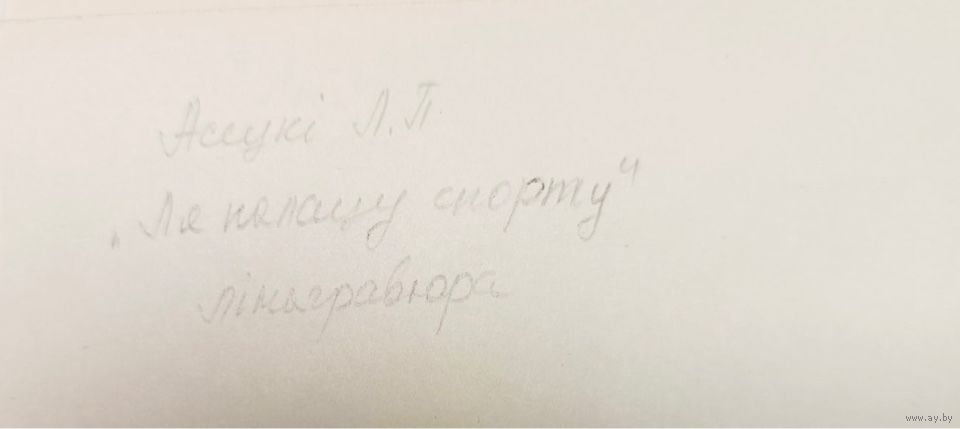 Асецкі Л.П.
„Ля палацу спорту“
лінагравюра
www.ay.by